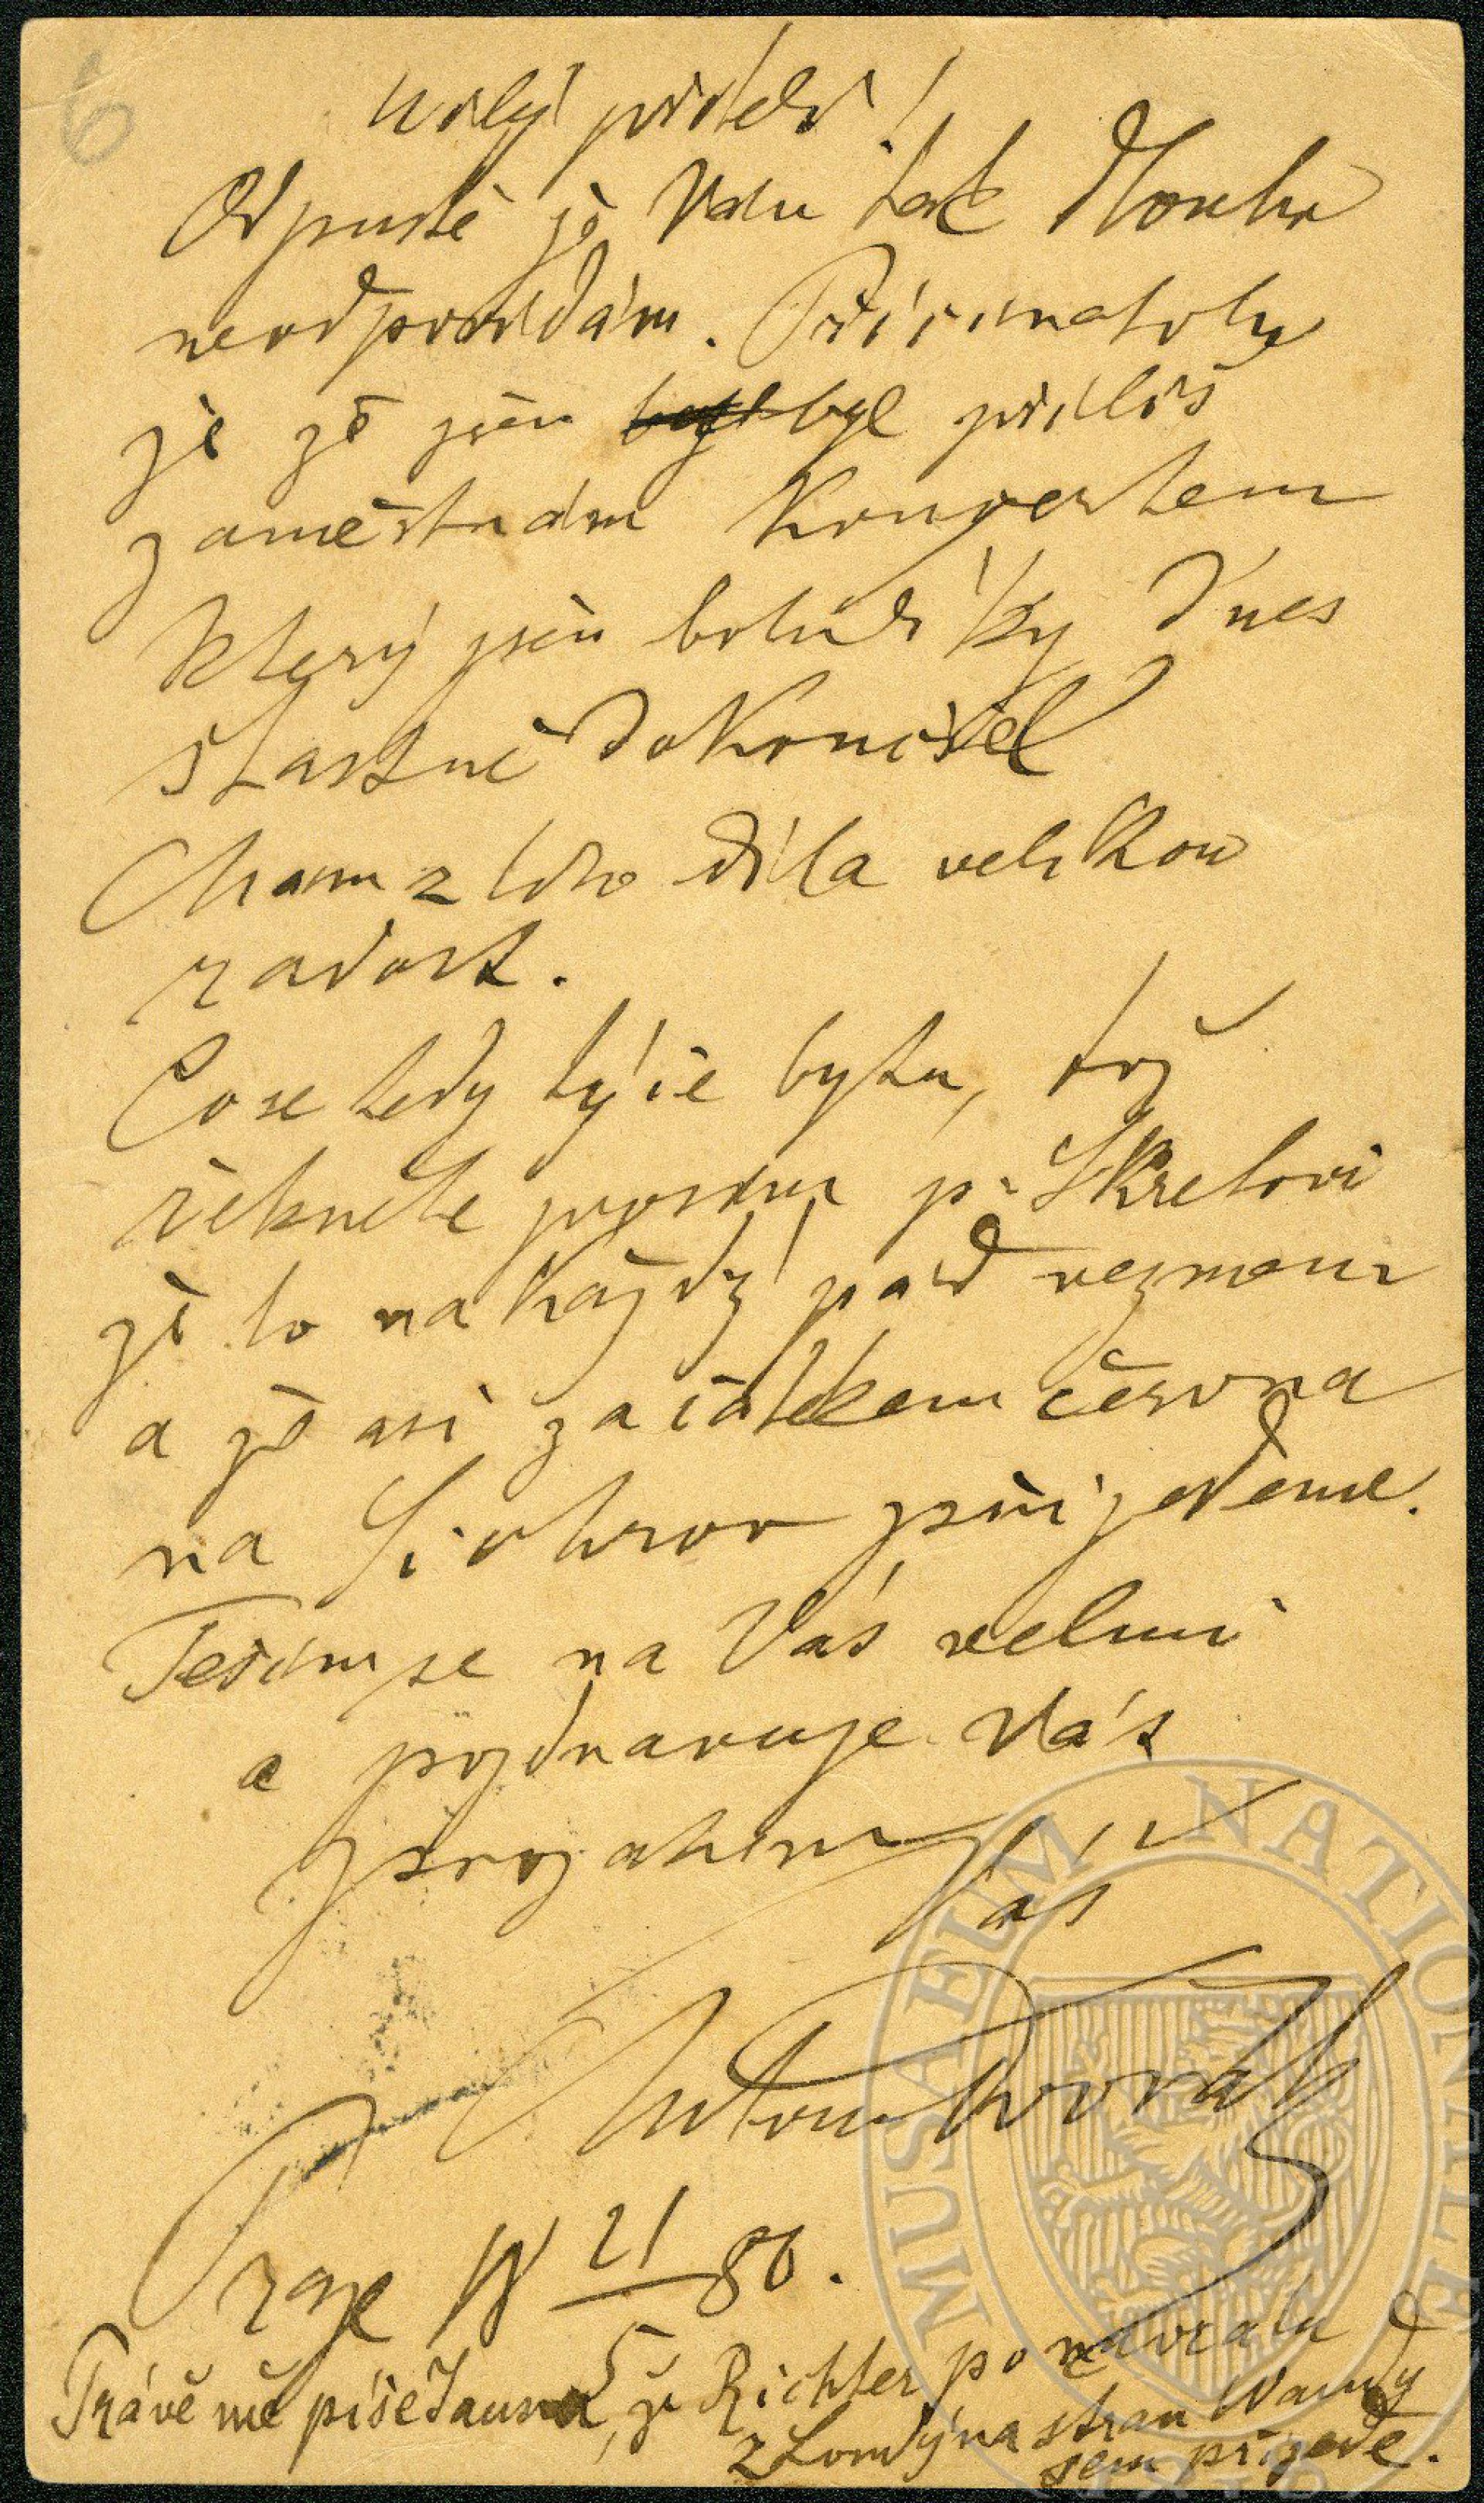 6
Milý příteli!
Odpusťě že Vám tak dlouho
neodpovídám. Příčina toho
je že jsem byl byl příliš
zaměstnám koncertem
který jsem bohudíky dnes
šťastně dokončil
Mám z toho díla velikou
radost.
Co se tedy týče bytu, též
řekněte prosím p. Škretovi
že to na každý pád vezmem
a že asi začátkem června
na Sichrov přijedeme.
Teším se na Vás velmi
a pozdravuje Vás
srdečně Váš
Antonín Dvořák
Praze 21/5 80.
Právě mě píše Jauner, že Richter po návratu
z Londýna stran Wandy
sem přijede.
MUSAEUM NATIONALE